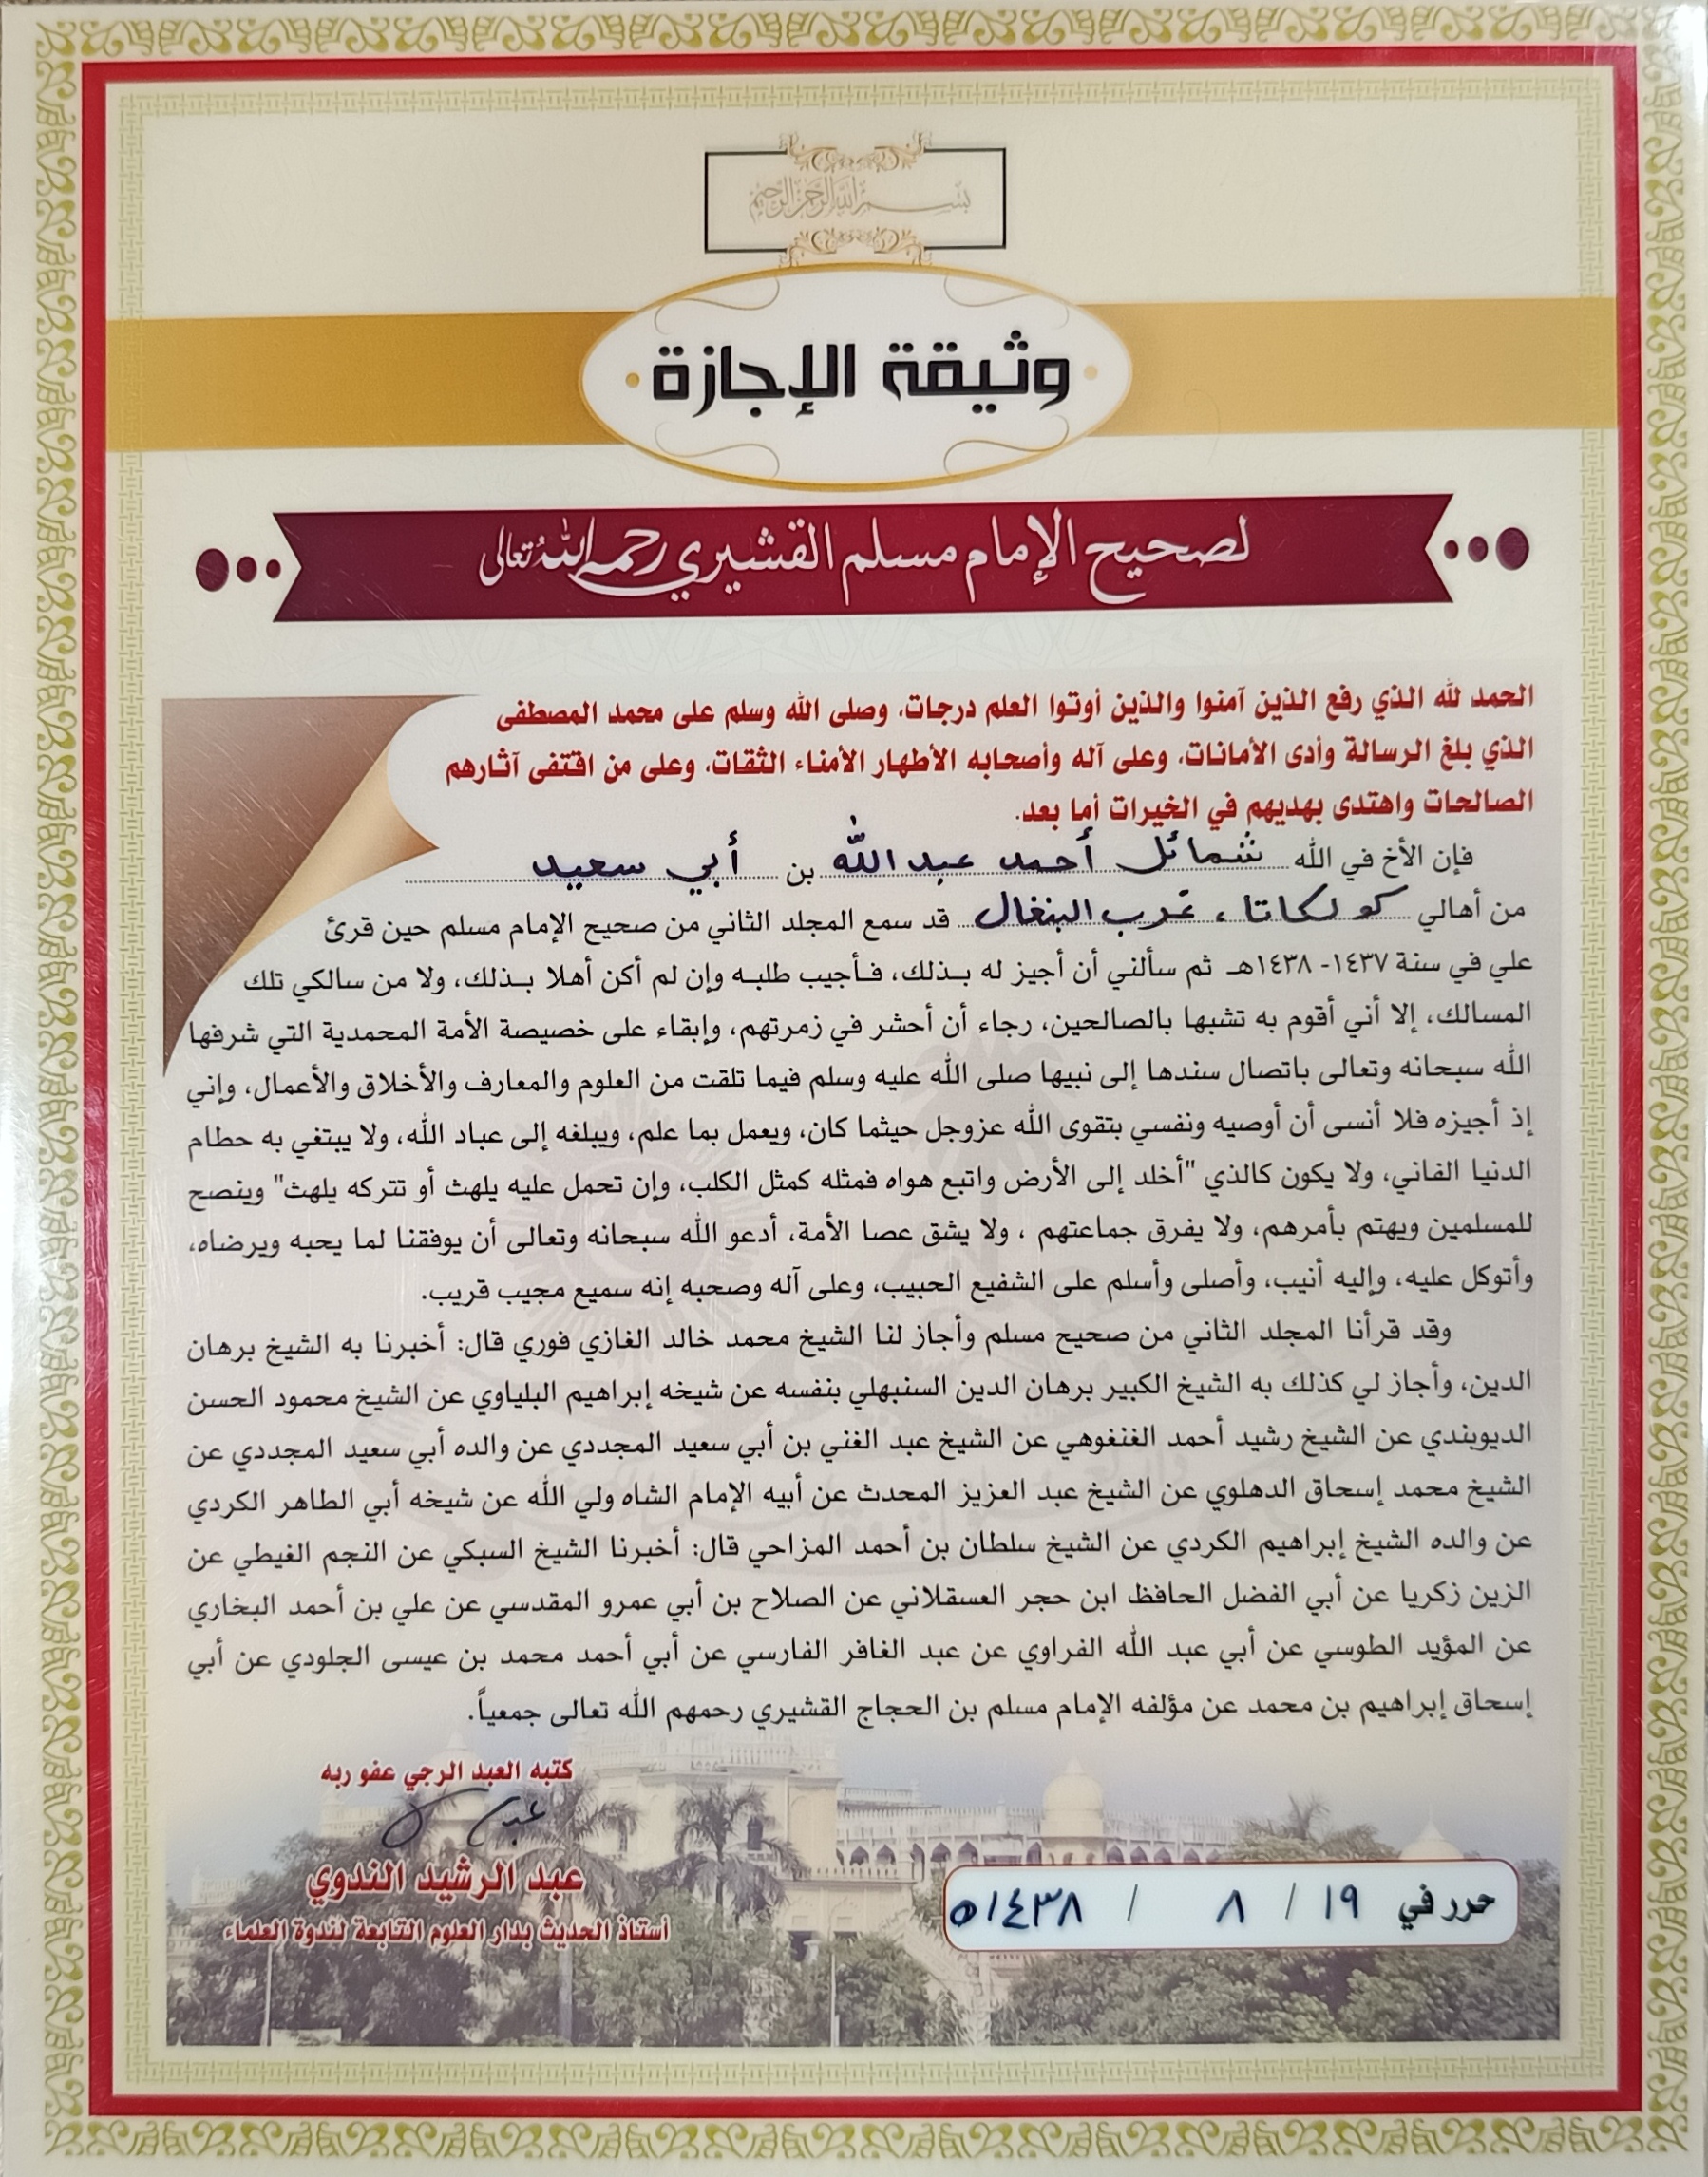 بسم الله الرحمن الرحيم
وثيقة الإجازة
لصحيح الإمام مسلم القشيري رحمه الله تعالى
الحمد لله الذي رفع الذين آمنوا والذين أوتوا العلم درجات، وصلى الله وسلم على محمد المصطفى
الذي بلغ الرسالة وأدى الأمانات، وعلى آله وأصحابه الأطهار الأمناء الثقات، وعلى من اقتفى آثارهم
الصالحات واهتدى بهديهم في الخيرات أما بعد.
فإن الأخ في الله شمائل أحمد عبد الله بن أبي سعيد
من أهالي كولكاتا، غرب البنغال قد سمع المجلد الثاني من صحيح الإمام مسلم حين قرئ
علي في سنة ١٤٣٧- ١٤٣٨هـ ثم سألني أن أجيز له بذلك، فأجيب طلبه وإن لم أكن أهلا بذلك، ولا من سالكي تلك
المسالك، إلا أني أقوم به تشبها بالصالحين، رجاء أن أحشر في زمرتهم، وإبقاء على خصيصة الأمة المحمدية التي شرفها
الله سبحانه وتعالى باتصال سندها إلى نبيها صلى الله عليه وسلم فيما تلقت من العلوم والمعارف والأخلاق والأعمال، وإني
إذ أجيزه فلا أنسى أن أوصيه ونفسي بتقوى الله عزوجل حيثما كان، ويعمل بما علم، ويبلغه إلى عباد الله، ولا يبتغي به حطام
الدنيا الفاني، ولا يكون كالذي "أخلد إلى الأرض واتبع هواه فمثله كمثل الكلب، وإن تحمل عليه يلهث أو تتركه يلهث" وينصح
للمسلمين ويهتم بأمرهم، ولا يفرق جماعتهم ، ولا يشق عصا الأمة، أدعو الله سبحانه وتعالى أن يوفقنا لما يحبه ويرضاه،
وأتوكل عليه، وإليه أنيب، وأصلى وأسلم على الشفيع الحبيب، وعلى آله وصحبه إنه سميع مجيب قريب.
وقد قرأنا المجلد الثاني من صحيح مسلم وأجاز لنا الشيخ محمد خالد الغازي فوري قال: أخبرنا به الشيخ برهان
الدين، وأجاز لي كذلك به الشيخ الكبير برهان الدين السنبهلي بنفسه عن شيخه إبراهيم البلياوي عن الشيخ محمود الحسن
الديوبندي عن الشيخ رشيد أحمد الغنغوهي عن الشيخ عبد الغني بن أبي سعيد المجددي عن والده أبي سعيد المجددي عن
الشيخ محمد إسحاق الدهلوي عن الشيخ عبد العزيز المحدث عن أبيه الإمام الشاه ولي الله عن شيخه أبي الطاهر الكردي
عن والده الشيخ إبراهيم الكردي عن الشيخ سلطان بن أحمد المزاحي قال: أخبرنا الشيخ السبكي عن النجم الغيطي عن
الزين زكريا عن أبي الفضل الحافظ ابن حجر العسقلاني عن الصلاح بن أبي عمرو المقدسي عن علي بن أحمد البخاري
عن المؤيد الطوسي عن أبي عبد الله الفراوي عن عبد الغافر الفارسي عن أبي أحمد محمد بن عيسى الجلودي عن أبي
إسحاق إبراهيم بن محمد عن مؤلفه الإمام مسلم بن الحجاج القشيري رحمهم الله تعالى جمعياً.
كتبه العبد الرجي عفو ربه
عبد الرشيد الندوي
أستاذ الحديث بدار العلوم التابعة لندوة العلماء
حرر في ١٩ / ٨ / ١٤٣٨ه